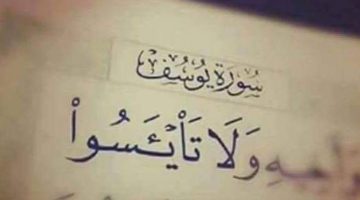 سُورَةُ يُوسُف
وَلَا تَا۟يْـَٔسُوا۟